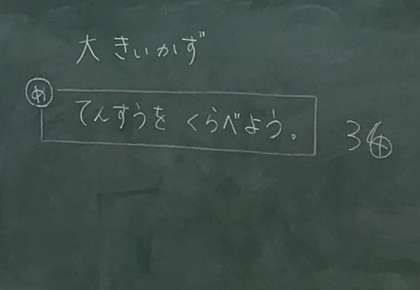 大きいかず
め てんすうを くらべよう。
34